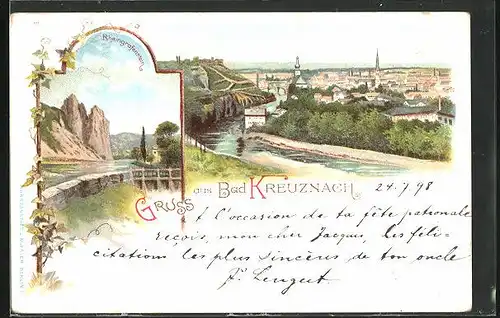 Rheingrafenstein
GRUSS aus Bad KREUZNACH
24.7.98
A l'occasion de ta fête patronale
reçois, mon cher Jacques, les féli-
citations les plus sincères de ton oncle